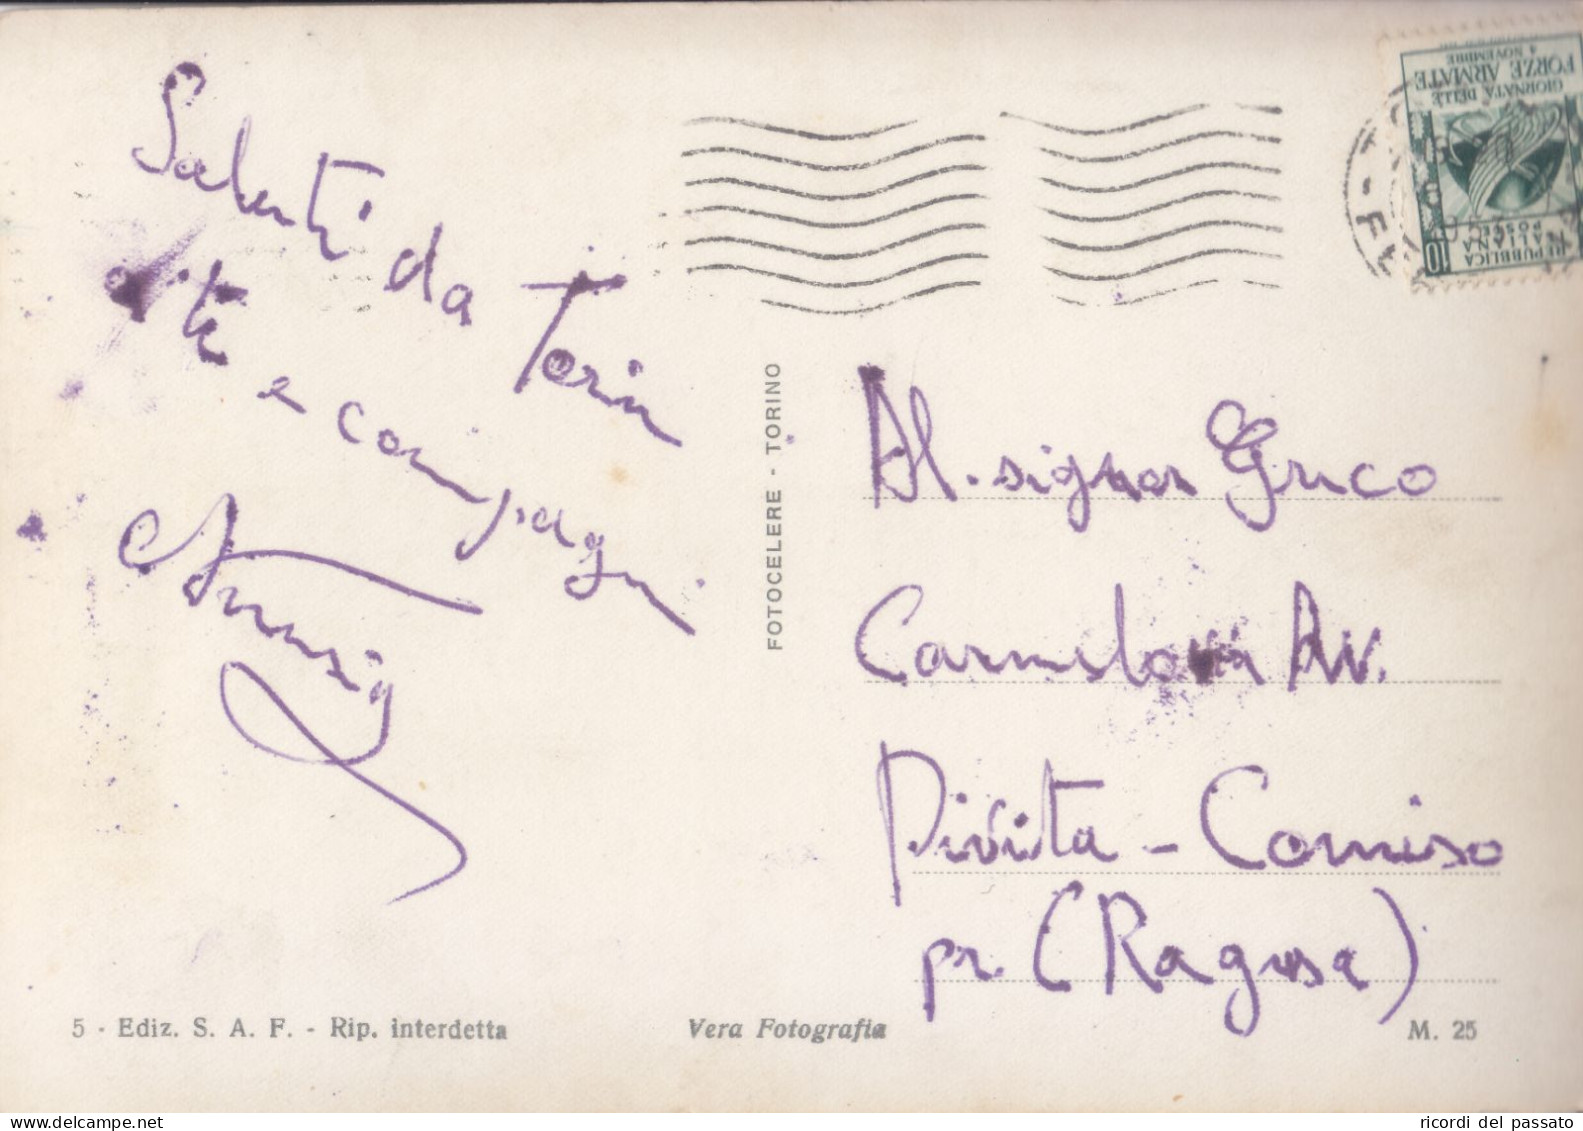 Saluti da Torin
e compagni
FOTOCELERE - TORINO
REPUBBLICA
ITALIANA
POSTE
10
GIORNATA DELLE
FORZE ARMATE
4 NOVEMBRE
Al. signor Greco
Carmelo Av.
Pivita - Comiso
pr. (Ragusa)
5 - Ediz. S. A. F. - Rip. interdetta
Vera Fotografia
M. 25
ricordi del passato